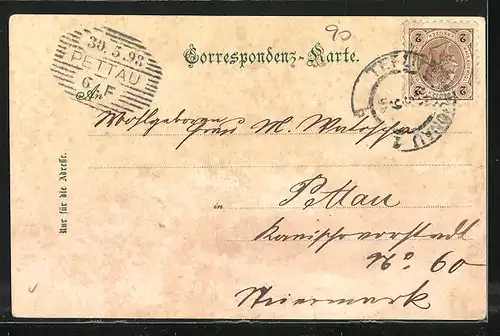 90
30.5.98
PETTAU
6 F
2 2
Correspondenz-Karte.
An
Wohlgeboren
Frau M.
Nur für die Adresse.
in Pettau
Kanischavorstadt
No. 60
Steiermark